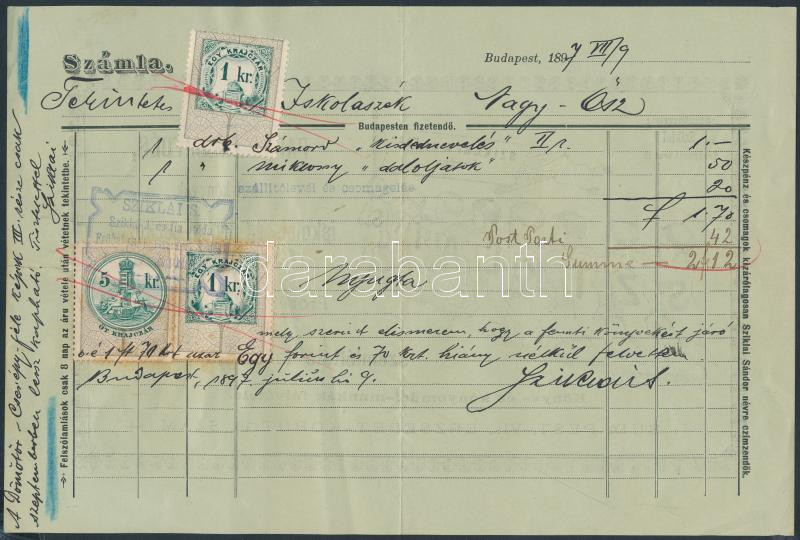 Számla.
Budapest, 1897 VII/9
Tekintetes Iskolaszék Nagy-Ősz
Budapesten fizetendő.
1 drb. Számord „Kisdednevelés" II r. 1.—
1 " „daloljatok" 50
szállítólevél és csomagolás 20
f 1.70
Post Porti 42
Summa — 2.12
SZIKLAI S.
EGY KRAJCZÁR
1 kr.
5 kr.
ÖT KRAJCZÁR
EGY KRAJCZÁR
1 kr.
darabanth
Nyugta
mely szerint elismerem, hogy a fennti könyvekért járó
1 ft 70 krt azaz Egy forint és 70 krt. hiány nélkül felvettem
Budapest, 1897. július hó 9. Sziklai S.
A Dömötör-Cserépy féle képek III-része csak
szeptemberben lesz kapható. Tisztelettel
Sziklai
Felszólamlások csak 8 nap az áru vétele után vétetnek tekintetbe.
Készpénz és csomagok kizárólagosan Sziklai Sándor névre czimzendők.